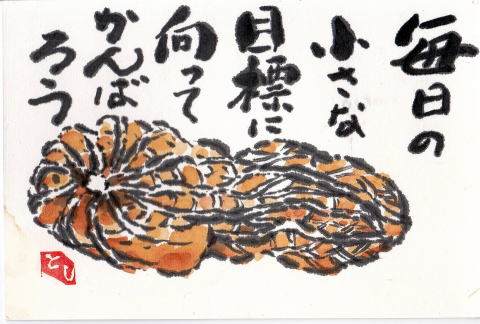 毎日の
小さな
目標に
向って
かんば
ろう
とし